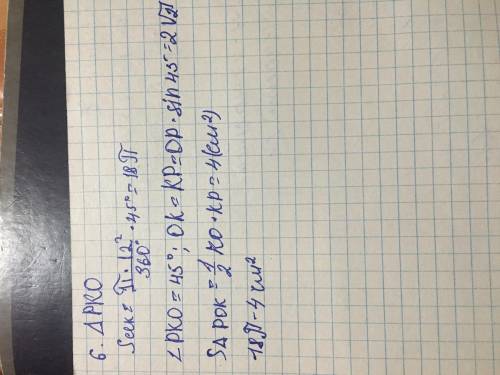 6. ΔPKO
Sсек = π · 12² / 360° · 45° = 18π
∠PKO = 45°; OK = KP = OP · sin 45 = 2√2
SΔPOK = 1/2 KO · KP = 4 (см²)
18π - 4 см²